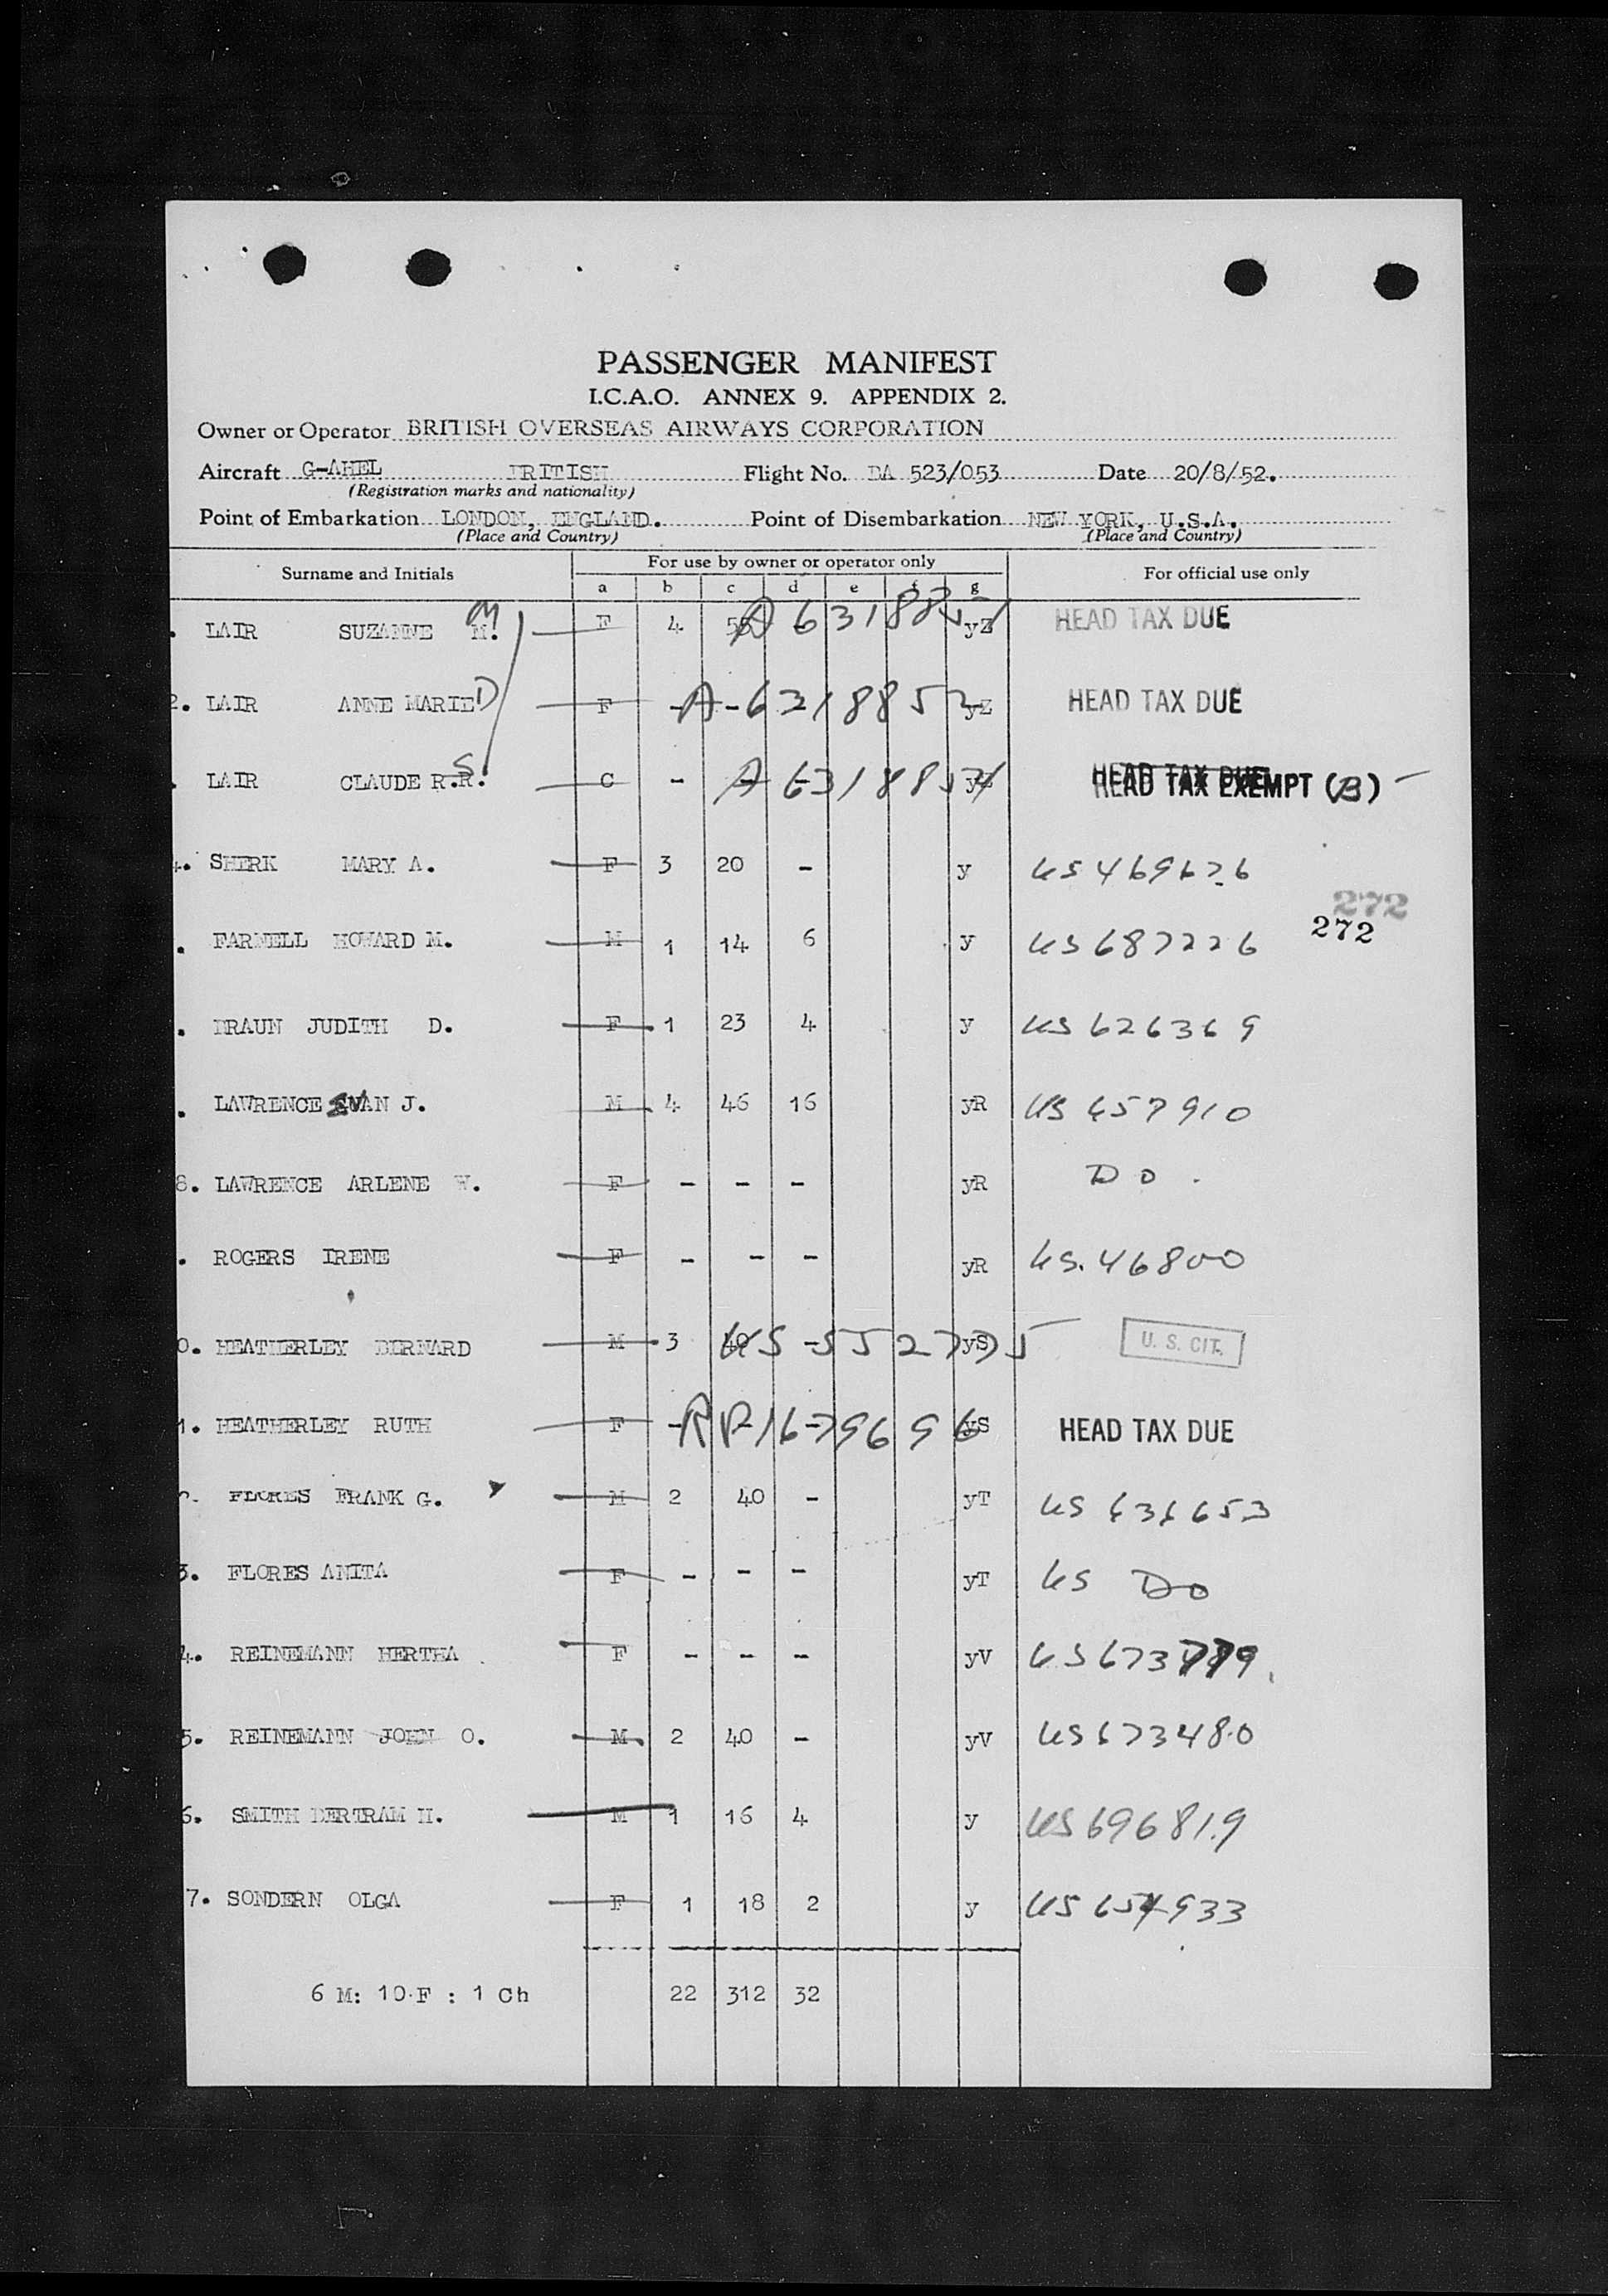 PASSENGER MANIFEST
I.C.A.O. ANNEX 9. APPENDIX 2.
Owner or Operator BRITISH OVERSEAS AIRWAYS CORPORATION
Aircraft G-AHEL BRITISH Flight No. BA 523/053 Date 20/8/52.
(Registration marks and nationality)
Point of Embarkation LONDON, ENGLAND. Point of Disembarkation NEW YORK, U.S.A.
(Place and Country) (Place and Country)
Surname and Initials For use by owner or operator only For official use only
a b c d e f g
. LAIR SUZANNE M. M F 4 yZ HEAD TAX DUE
2. LAIR ANNE MARIE D F - yZ HEAD TAX DUE
. LAIR CLAUDE R.R. S C - HEAD TAX DUE HEAD TAX EXEMPT (B)
4. SHIRK MARY A. F 3 20 - y US 469626
272
. FARNELL HOWARD M. M 1 14 6 y US 687226 272
. BRAUN JUDITH D. F 1 23 4 y US 626369
. LAWRENCE J. M 4 46 16 yR US 657910
8. LAWRENCE ARLENE W. F - - - yR DO.
. ROGERS IRENE F - - - yR US. 46800
0. HEATHERLEY BERNARD M 3 yS U. S. CIT.
1. HEATHERLEY RUTH F - RP-1679696 yS HEAD TAX DUE
FLORES FRANK G. M 2 40 - yT US 636653
3. FLORES ANITA F - - - yT US DO
4. REINEMANN HERTHA F - - - yV
5. REINEMANN JOHN O. M 2 40 - yV US 673480
6. SMITH BERTRAM H. M 1 16 4 y US 696819
7. SONDERN OLGA F 1 18 2 y US 654933
6 M: 10 F : 1 Ch 22 312 32